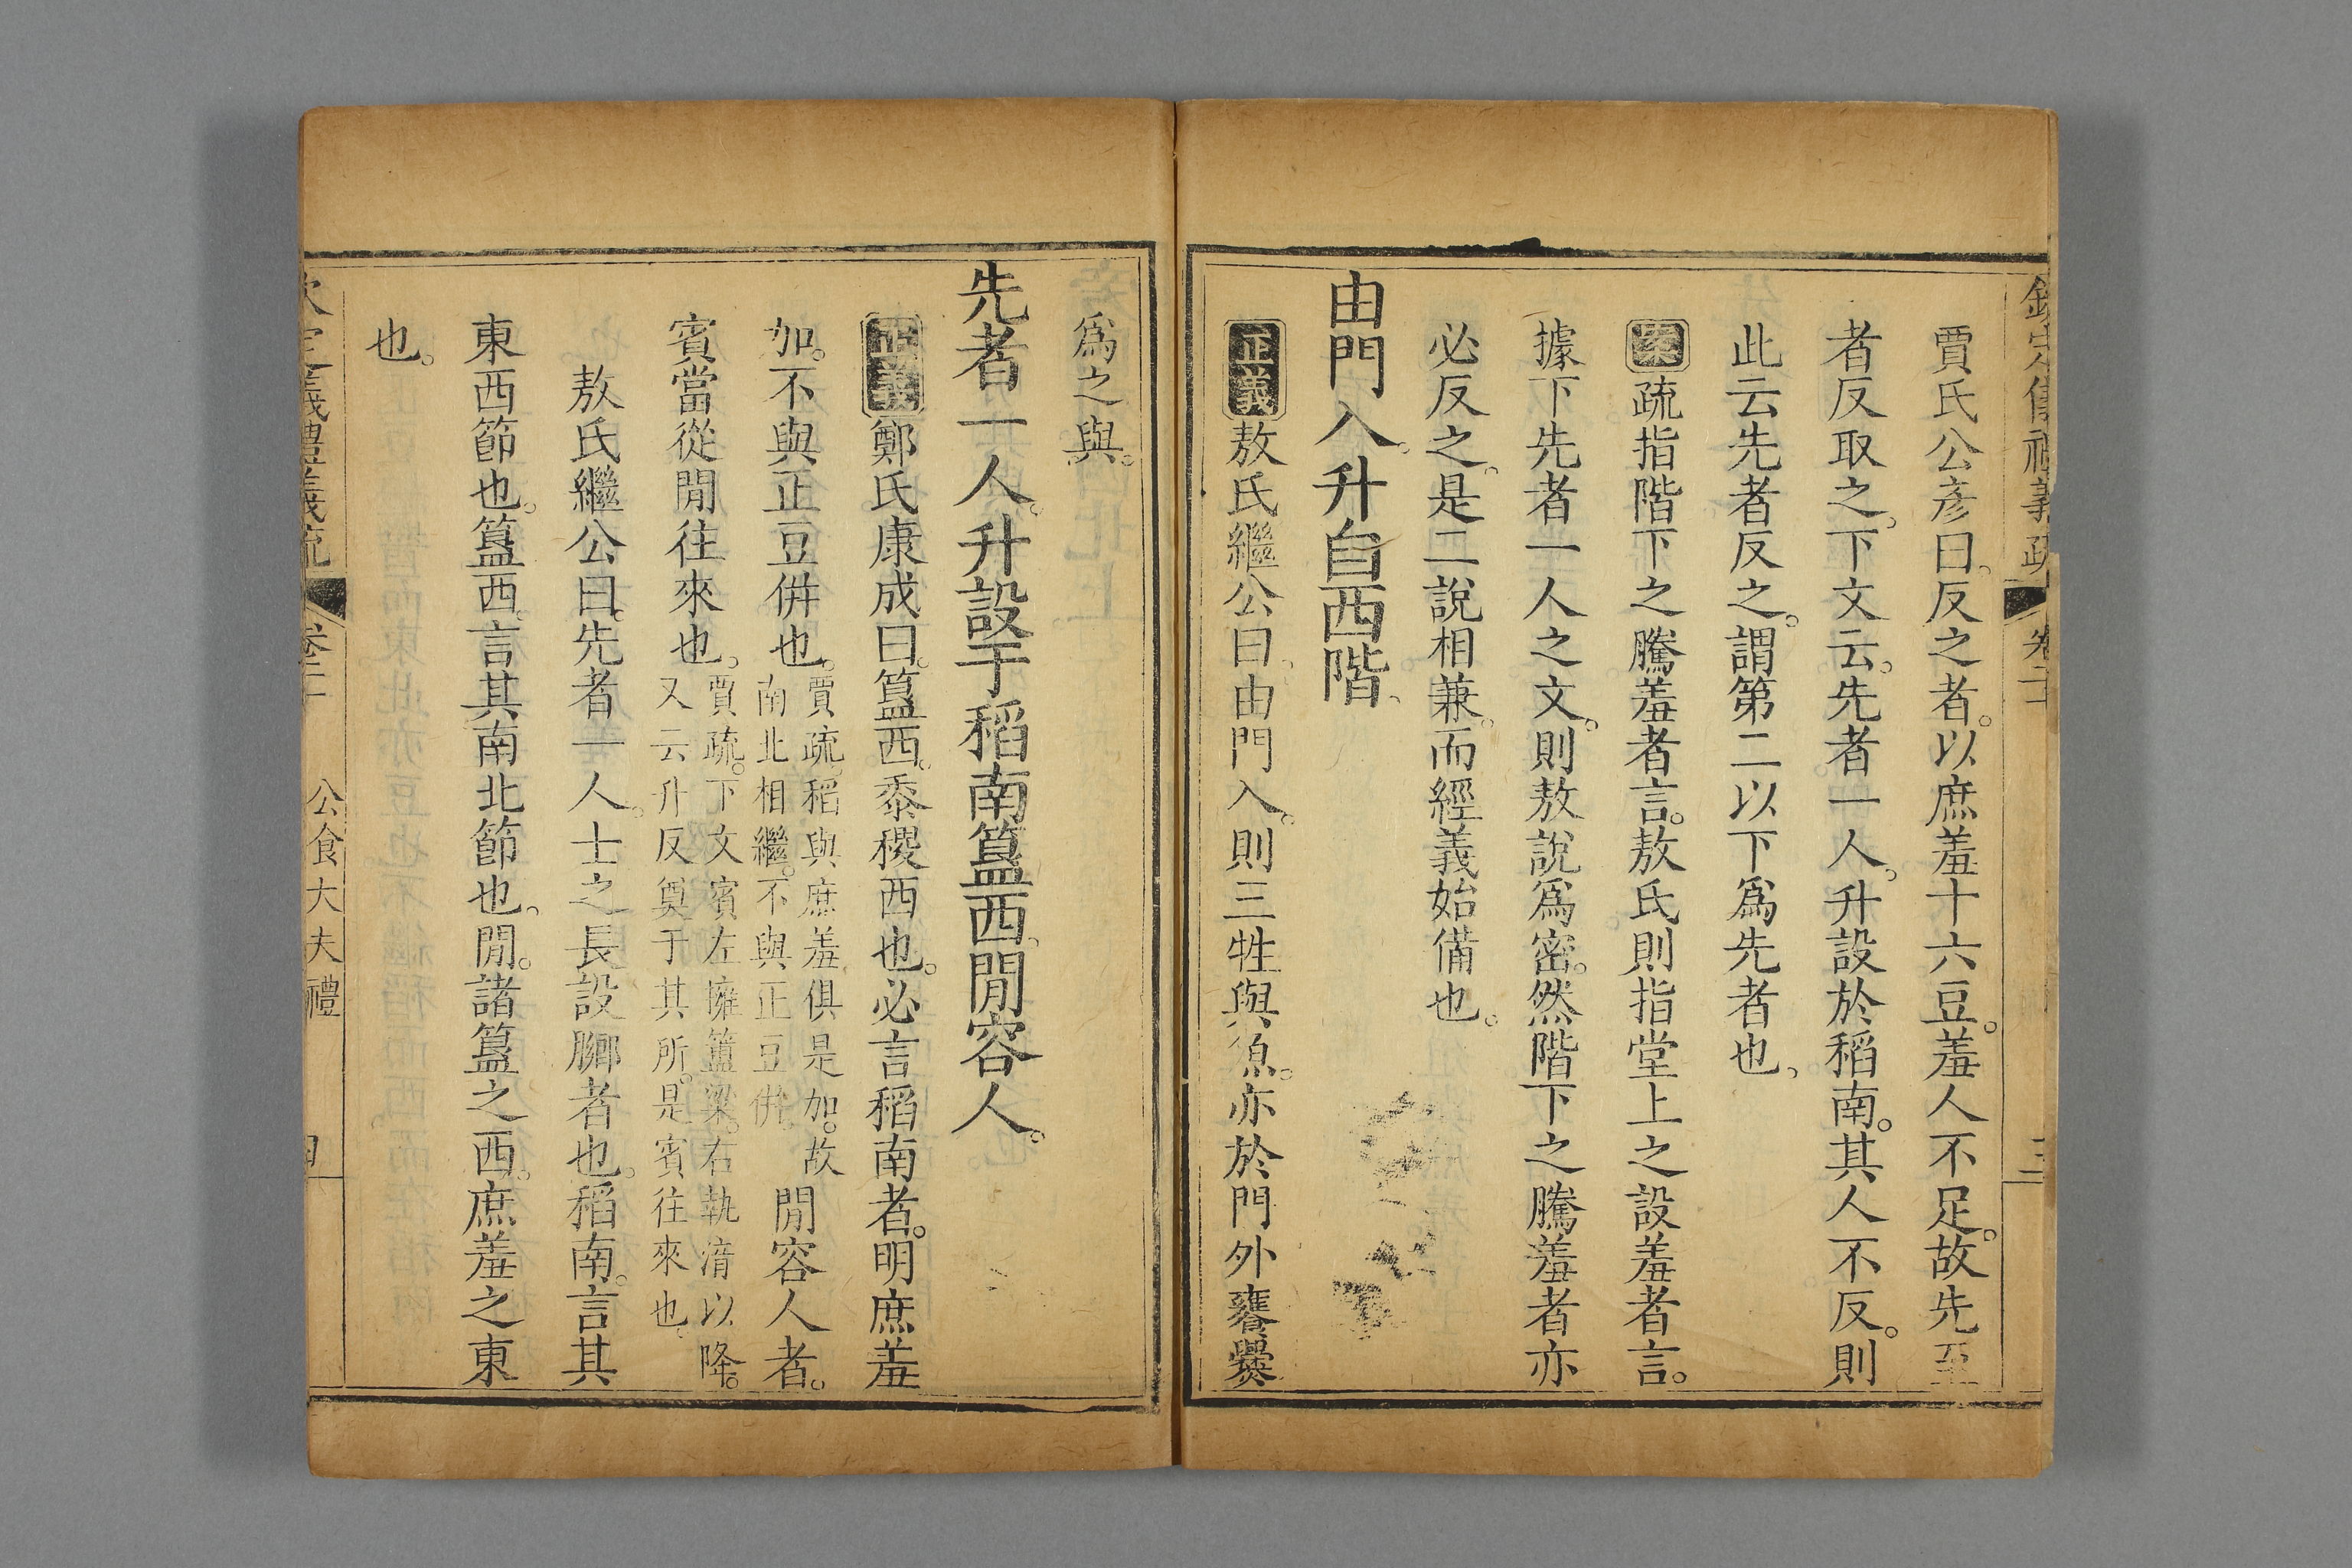 欽定儀禮義疏 卷二十 三
賈氏公彥曰反之者。以庶羞十六豆。羞人不足。故先至
者反取之。下文云。先者一人。升設於稻南。其人不反。則
此云先者反之。謂第二以下為先者也。
案疏指階下之騰羞者言。敖氏則指堂上之設羞者言。
據下先者一人之文。則敖說為密。然階下之騰羞者亦
必反之。是二說相兼。而經義始備也。
由門入。升自西階。
正義敖氏繼公曰。由門入。則三牲與魚。亦於門外饔爨
為之與。
先者一人。升設于稻南簋西。閒容人。
正義鄭氏康成曰。簋西。黍稷西也。必言稻南者。明庶羞
加。不與正豆併也。賈疏。稻與庶羞俱是加。故南北相繼。不與正豆併。閒容人者。
賓當從閒往來也。賈疏。下文賓左擁簠粱。右執湇以降。又云升反奠于其所。是賓往來也。
敖氏繼公曰。先者一人。士之長設膷者也。稻南。言其
東西節也。簋西。言其南北節也。閒。諸簋之西。庶羞之東
也。
欽定儀禮義疏 卷二十 公食大夫禮 四